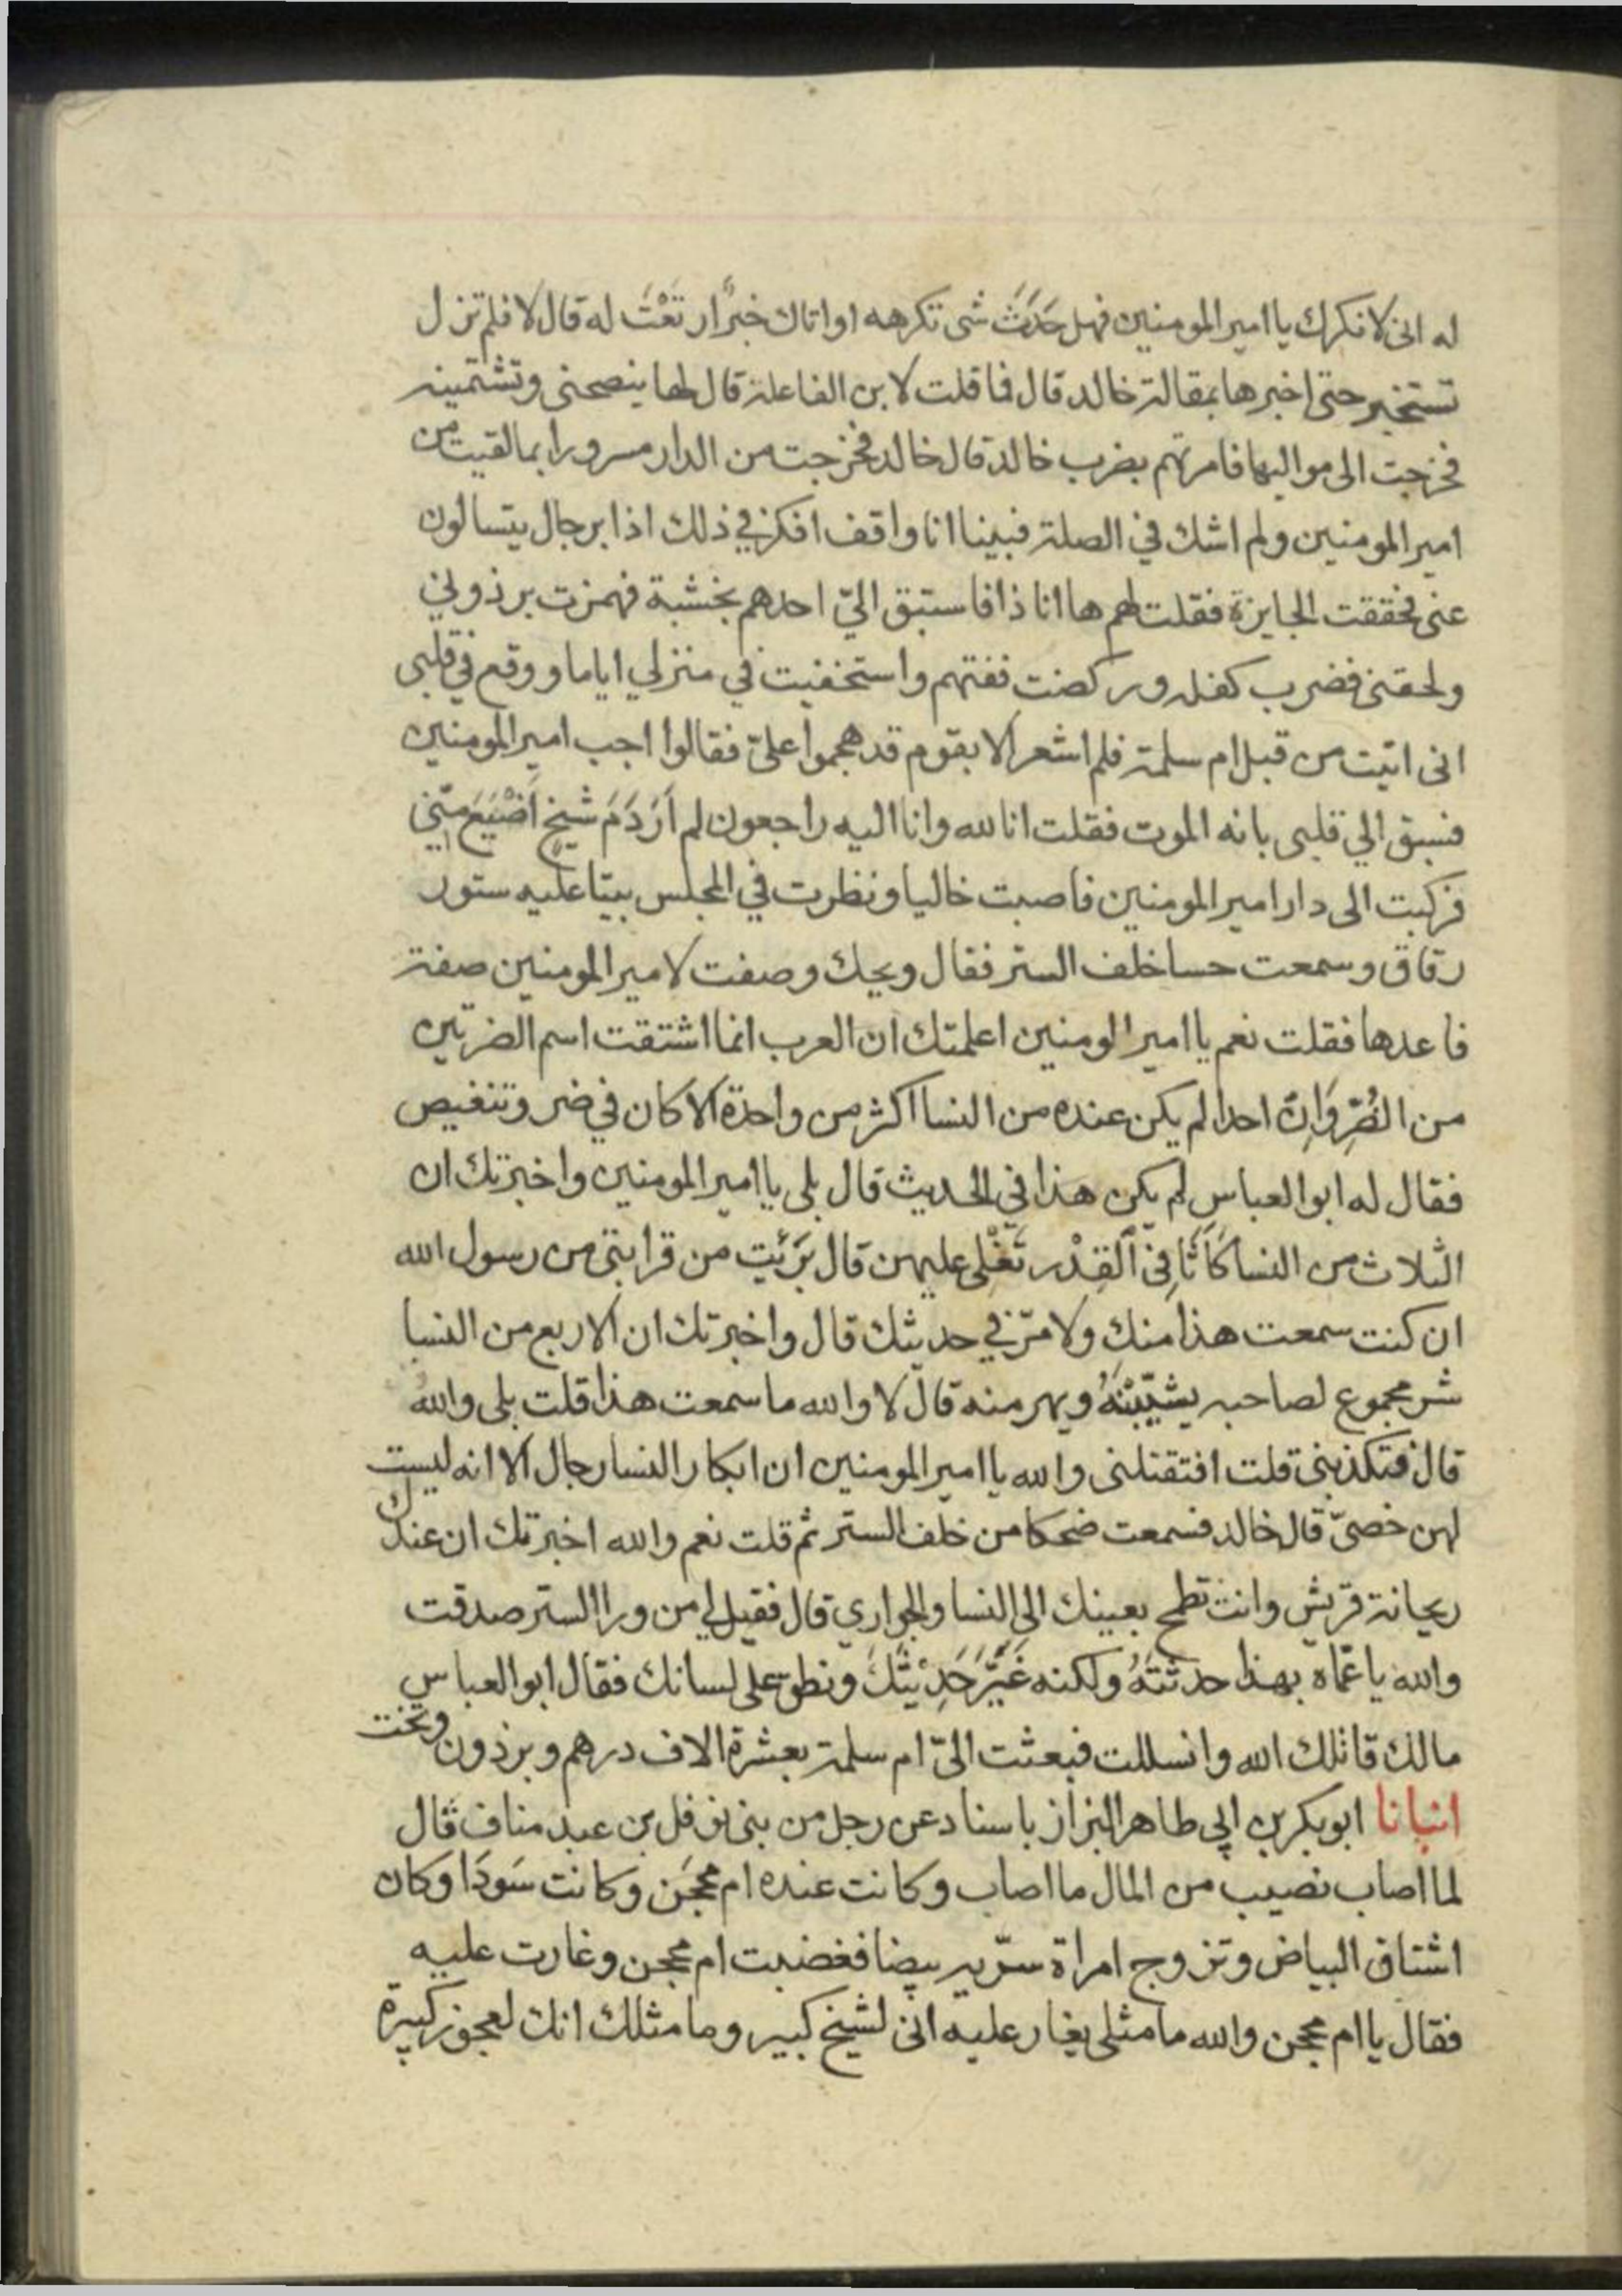 له انى لانكرك يا امير المومنين فهل حَدَثَ شى تكرهه او اتاك خبرٌ ارتَعْتَ له قال لا فلم تزل
تستخبر حتى اخبرها بمقالة خالد قال فما قلت لابن الفاعلة قال لها ينصحنى وتشتمينه
فخرجت الى مواليها فامرتهم بضرب خالد قال خالد فخرجت من الدار مسرورا بما لقيت من
امير المومنين ولم اشك في الصلة فبينا انا واقف افكر في ذلك اذا برجال يتسالون
عنى فحققت الجايزة فقلت لهم ها انا ذا فاستبق اليّ احدهم بخشبة فهمزت برذوني
ولحقنى فضرب كفله وركضت ففتهم واستخفيت في منزلي اياما ووقع في قلبى
انى اتيت من قبل ام سلمة فلم اشعر الا بقوم قد هجموا علىّ فقالوا اجب امير المومنين
فسبق الي قلبى بانه الموت فقلت انا لله وانا اليه راجعون لم اَرَ دَمَ شيخٍ اَضْيَعَ منّي
فركبت الى دار امير المومنين فاصبت خاليا ونظرت في المجلس بيتا عليه ستور
رقاق وسمعت حسا خلف الستر فقال ويحك وصفت لامير المومنين صفة
فاعدها فقلت نعم يا امير الومنين اعلمتك ان العرب انما اشتقت اسم الضرتين
من الضُرِّ وَاِنّ احدا لم يكن عنده من النسا اكثر من واحدة الا كان في ضر وتنغيص
فقال له ابو العباس لم يكن هذا في الحديث قال بلى يا امير المومنين واخبرتك ان
الثلاث من النسا كَاَثَافِى اَلقِدْر تَغْلِى عليهن قال بَرَئيت من قرابتى من رسول الله
ان كنت سمعت هذا منك ولا مرّ في حديثك قال واخبرتك ان الاربع من النسا
شر مجموع لصاحبه يشيّبْنَهُ ويهرمنه قال لا والله ما سمعت هذا قلت بلى واللهُ
قال فتكذبنى قلت افتقتلنى والله يا امير المومنين ان ابكار النسا رجال الا انه ليست
لهن خصىّ قال خالد فسمعت ضحكا من خلف الستر ثم قلت نعم والله اخبرتك ان عندك
ريحانة قريش وانت تطمح بعينك الى النسا والجواري قال فقيل لي من ورا الستر صدقت
والله يا عمّاه بهذا حدثتَهُ ولكنه غَيَّرَ حَدِيْثَكَ ونطق على لسانك فقال ابو العباس
مالك قاتلك الله وانسللت فبعثت الىّ ام سلمة بعشرة الاف درهم وبرذون وتخت
انبانا ابو بكر بن ابي طاهر البزاز باسناد عن رجل من بنى نوفل بن عبد مناف قال
لما اصاب نصيب من المال ما اصاب وكانت عنده ام محجَن وكانت سَودَا وكان
اشتاق البياض وتزوج امراة سرّية بيضا فغضبت ام محجن وغارت عليه
فقال يا ام محجن والله ما مثلى يغار عليه انى لشيخ كبير وما مثلك انك لعجوز كبيرة